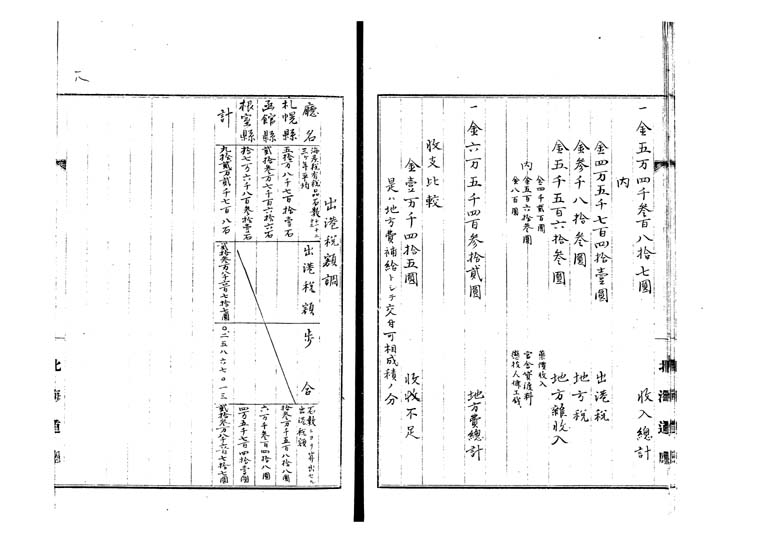 一金五万四千参百八拾七圓 收入總計
内
金四万五千七百四拾壹圓 出港税
金参千八拾参圓 地方税
金五千五百六拾参圓 地方雜收入
内
金四千貳百圓 藥價收入
金五百六拾参圓 官舎貸渡料
金八百圓
一金六万五千四百参拾貳圓 地方費總計
收支比較
金壹万千四拾五圓 收收不足
是ハ地方費補給トシテ交付可相成積ノ分
北海道廳
出港税額調
廳名
海産税有税品石數
三ヶ年平均
出港税額
歩合
石數ヨリ算出セル
出港税額
札幌縣
五拾万八千七百拾壹石
拾参万千五百八拾八圓
函館縣
貳拾参万七千百六拾六石
六万千参百四拾八圓
根室縣
拾七万六千八百参拾壹石
四万五千七百四拾壹圓
計
九拾貳万貳千七百八石
貳拾参万八千六百七拾七圓
〇二五八六七〇一三
貳拾参万八千六百七拾七圓
北海道廳
八